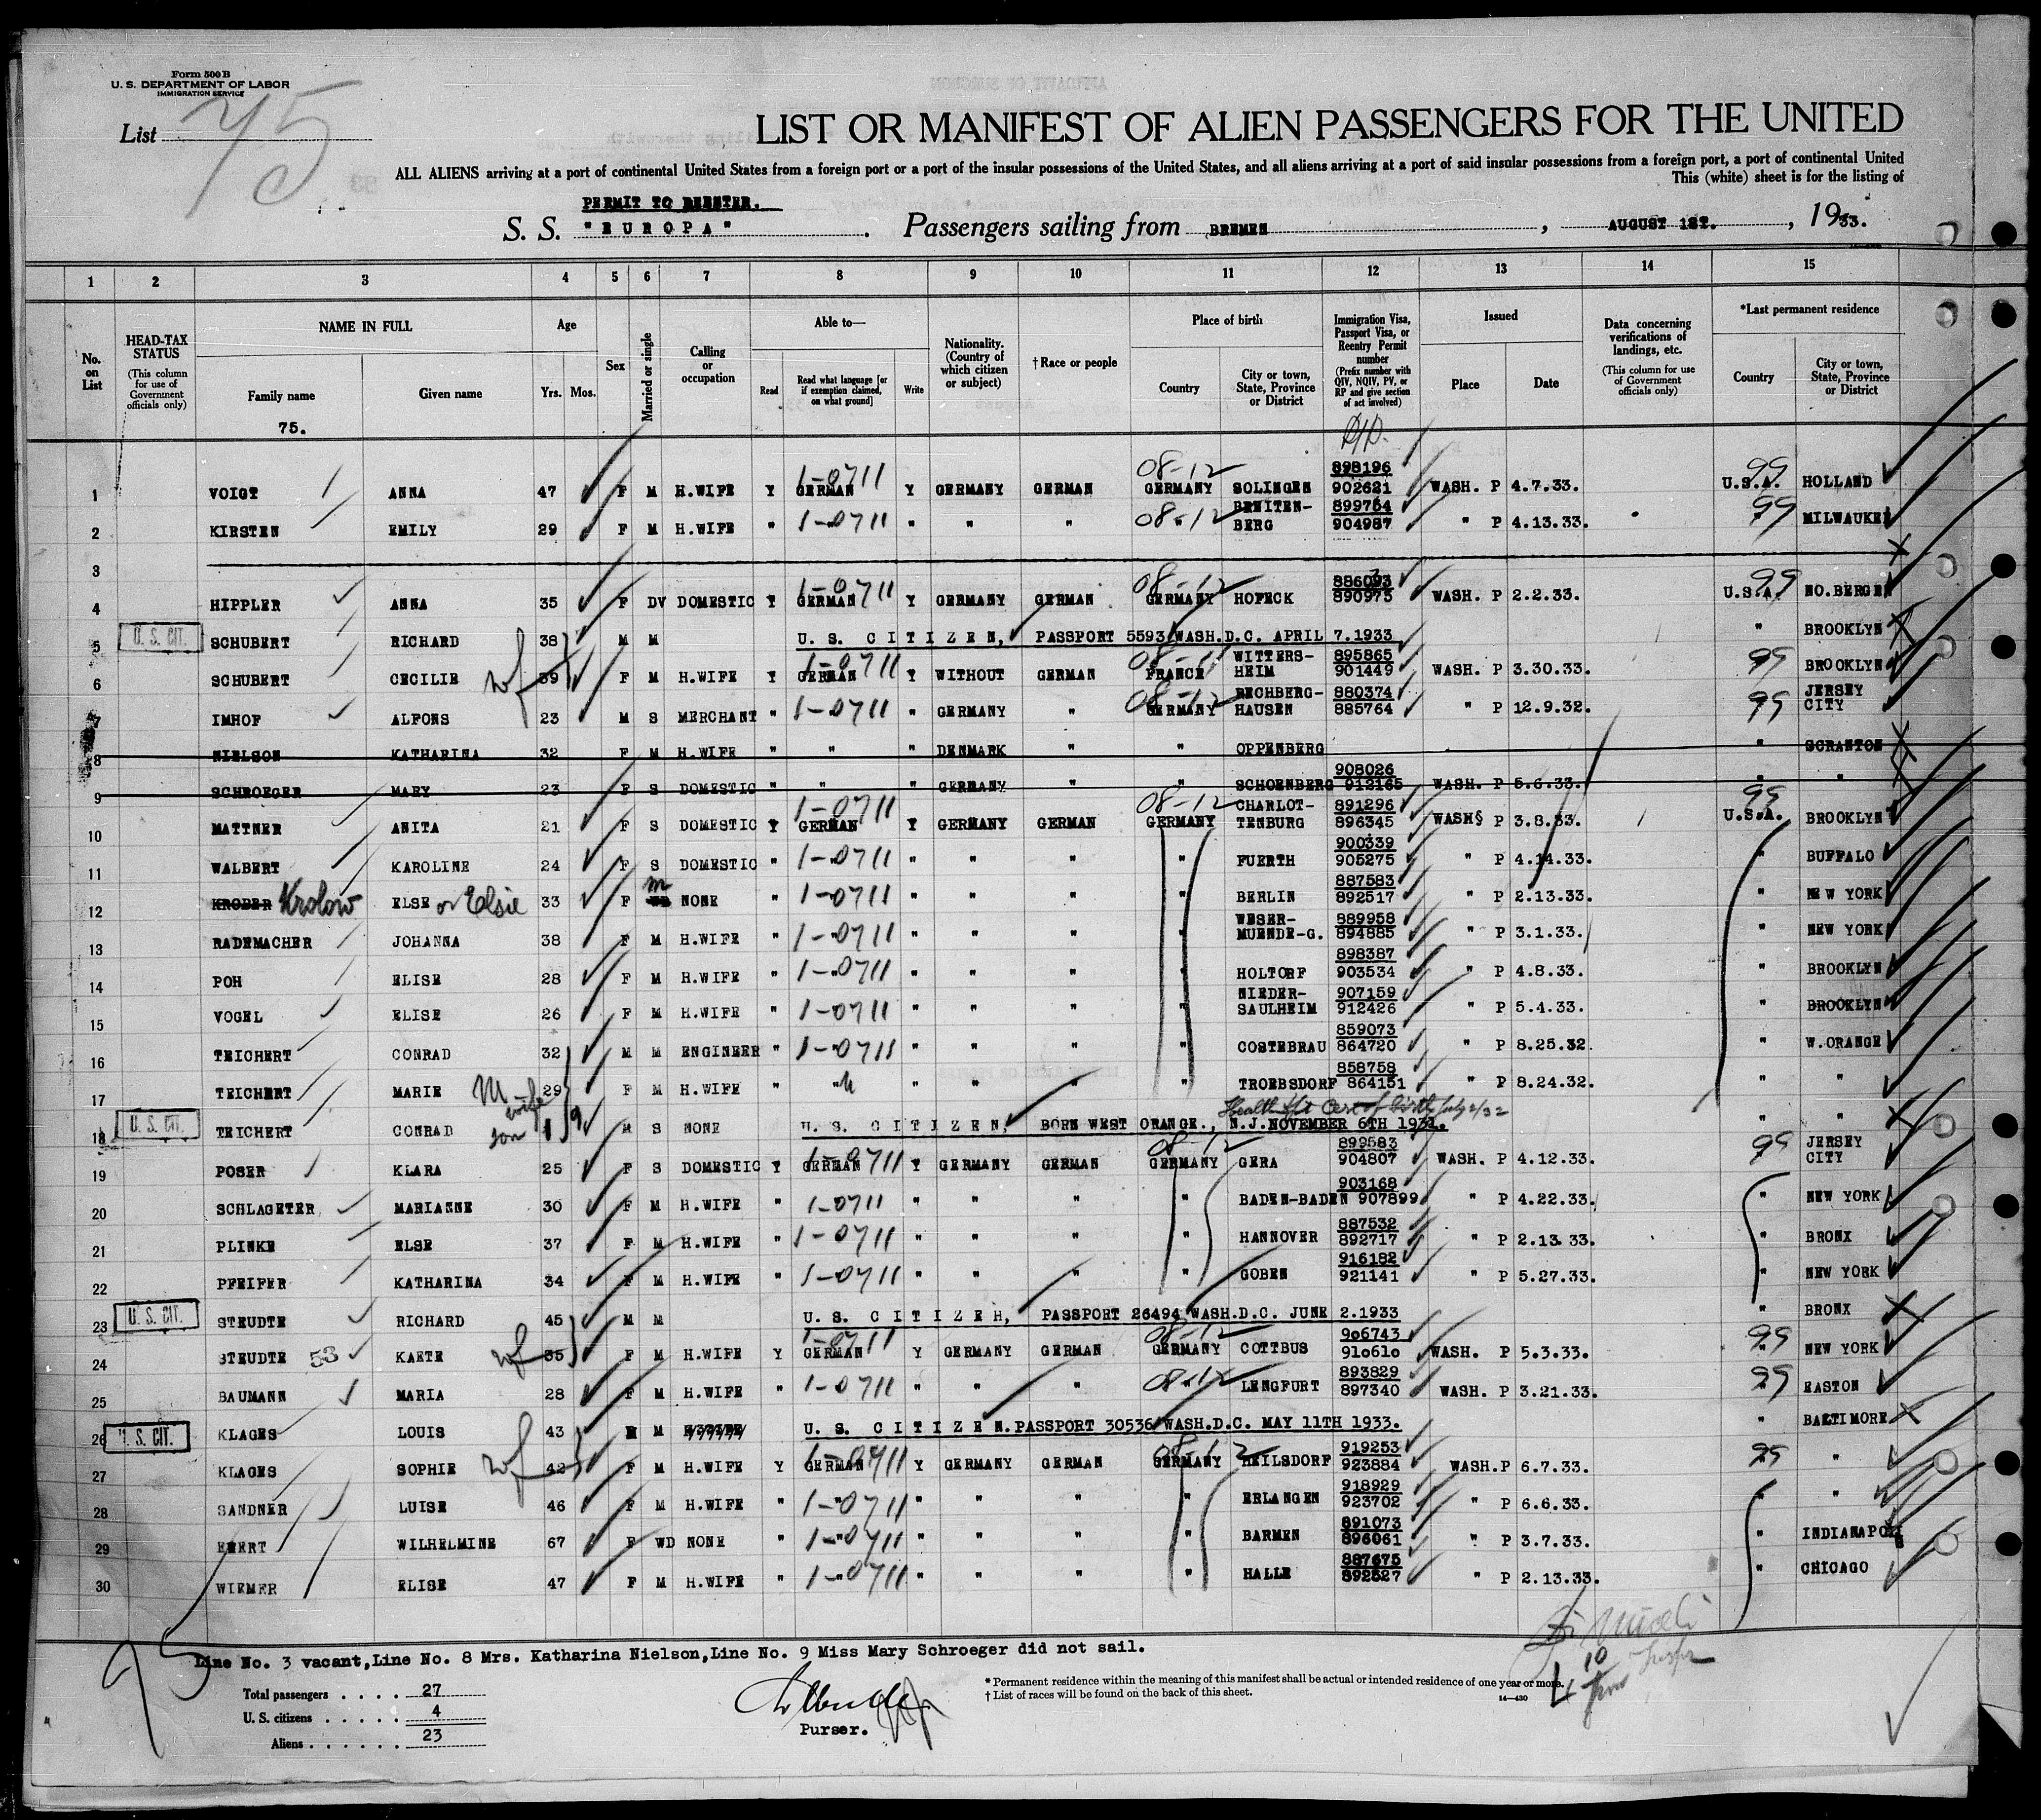 Form 500 B
U. S. DEPARTMENT OF LABOR
IMMIGRATION SERVICE
List 75
LIST OR MANIFEST OF ALIEN PASSENGERS FOR THE UNITED
ALL ALIENS arriving at a port of continental United States from a foreign port or a port of the insular possessions of the United States, and all aliens arriving at a port of said insular possessions from a foreign port, a port of continental United
This (white) sheet is for the listing of
PERMIT TO REENTER.
S. S. "EUROPA". Passengers sailing from BREMEN, AUGUST 1ST., 1933.
1 2 3 4 5 6 7 8 9 10 11 12 13 14 15
No. on List
HEAD-TAX STATUS (This column for use of Government officials only)
NAME IN FULL
Family name
Given name
75.
Age
Yrs. Mos.
Sex
Married or single
Calling or occupation
Able to—
Read
Read what language [or if exemption claimed, on what ground]
Write
Nationality. (Country of which citizen or subject)
†Race or people
Place of birth
Country
City or town, State, Province or District
Immigration Visa, Passport Visa, or Reentry Permit number (Prefix number with QIV, NQIV, PV, or RP and give section of act involved)
Issued
Place
Date
Data concerning verifications of landings, etc. (This column for use of Government officials only)
*Last permanent residence
Country
City or town, State, Province or District
1 VOIGT ANNA 47 F M H.WIFE Y GERMAN 1-0711 Y GERMANY GERMAN 08-12 GERMANY SOLINGEN 898196 902621 WASH. P 4.7.33. 99 U.S.A. HOLLAND
2 KIRSTEN EMILY 29 F M H.WIFE " 1-0711 " " " 08-12 " BREITEN-BERG 899754 904987 " P 4.13.33. 99 " MILWAUKEE
3
4 HIPPLER ANNA 35 F DV DOMESTIC Y GERMAN 1-0711 Y GERMANY GERMAN 08-12 GERMANY HOFECK 886093 890975 WASH. P 2.2.33. 99 U.S.A. NO.BERGEN
U. S. CIT. 5 SCHUBERT RICHARD 38 M M U. S. CITIZEN, PASSPORT 5593 WASH.D.C. APRIL 7.1933 " BROOKLYN
6 SCHUBERT CECILIE wf 39 F M H.WIFE Y GERMAN 1-0711 Y WITHOUT GERMAN FRANCE WITTERS-HEIM 895865 901449 WASH. P 3.30.33. 99 " BROOKLYN
7 IMHOF ALFONS 23 M S MERCHANT " 1-0711 " GERMANY " 08-12 GERMANY RECHBERG-HAUSEN 880374 885764 " P 12.9.32. 99 JERSEY CITY
8 NIELSON KATHARINA 32 F M H.WIFE " " " DENMARK " " OPPENBERG " SCRANTON
9 SCHROEGER MARY 23 F S DOMESTIC " " " GERMANY " " SCHOENBERG 908026 912165 WASH. P 5.6.33. " "
10 MATTNER ANITA 21 F S DOMESTIC Y GERMAN 1-0711 Y GERMANY GERMAN 08-12 GERMANY CHARLOT-TENBURG 891296 896345 WASH§ P 3.8.33. 99 U.S.A. BROOKLYN
11 WALBERT KAROLINE 24 F S DOMESTIC " 1-0711 " " " " FUERTH 900339 905275 " P 4.14.33. " BUFFALO
12 KROBER Krolow ELSE or Elsie 33 F m NONE " 1-0711 " " " " BERLIN 887583 892517 " P 2.13.33. " NEW YORK
13 RADEMACHER JOHANNA 38 F M H.WIFE " 1-0711 " " " " WESER-MUENDE-G. 889958 894885 " P 3.1.33. " NEW YORK
14 POH ELISE 28 F M H.WIFE " 1-0711 " " " " HOLTORF 898387 903534 " P 4.8.33. " BROOKLYN
15 VOGEL ELISE 26 F M H.WIFE " 1-0711 " " " " NIEDER-SAULHEIM 907159 912426 " P 5.4.33. " BROOKLYN
16 TEICHERT CONRAD 32 M M ENGINEER " 1-0711 " " " " COSTEBRAU 859073 864720 " P 8.25.32. " W.ORANGE
17 TEICHERT MARIE wife 29 F M H.WIFE " " " " " " TROEBSDORF 858758 864151 " P 8.24.32. " "
Cert of birth July 2/32
U. S. CIT. 18 TEICHERT CONRAD son 1 9 M S NONE U. S. CITIZEN, BORN WEST ORANGE., N.J.NOVEMBER 6TH 1931. " "
19 POSER KLARA 25 F S DOMESTIC Y GERMAN 1-0711 Y GERMANY GERMAN 08-12 GERMANY GERA 899583 904807 WASH. P 4.12.33. 99 JERSEY CITY
20 SCHLAGETER MARIANNE 30 F M H.WIFE " 1-0711 " " " " BADEN-BADEN 903168 907899 " P 4.22.33. " NEW YORK
21 PLINKE ELSE 37 F M H.WIFE " 1-0711 " " " " HANNOVER 887532 892717 " P 2.13.33. " BRONX
22 PFEIFER KATHARINA 34 F M H.WIFE " 1-0711 " " " " GOBEN 916182 921141 " P 5.27.33. " NEW YORK
U. S. CIT. 23 STEUDTE RICHARD 45 M M U. S. CITIZEH, PASSPORT 26494 WASH.D.C. JUNE 2.1933 " BRONX
24 STEUDTE 53 KAETE wf 35 F M H.WIFE Y GERMAN 1-0711 Y GERMANY GERMAN 08-12 GERMANY COTTBUS 906743 910610 WASH. P 5.3.33. 99 " NEW YORK
25 BAUMANN MARIA 28 F M H.WIFE " 1-0711 " " " 08-12 " LENGFURT 893829 897340 WASH. P 3.21.33. 99 " EASTON
U. S. CIT. 26 KLAGES LOUIS 43 M M U. S. CITIZEN.PASSPORT 30536 WASH.D.C. MAY 11TH 1933. " BALTIMORE
27 KLAGES SOPHIE wf 42 F M H.WIFE Y GERMAN 1-0711 Y GERMANY GERMAN 08-12 GERMANY HEILSDORF 919253 923884 WASH.P 6.7.33. 99 "
28 SANDNER LUISE 46 F M H.WIFE " 1-0711 " " " " ERLANGEN 918929 923702 " P 6.6.33. " "
29 EWERT WILHELMINE 67 F WD NONE " 1-0711 " " " " BARMEN 891073 896061 " P 3.7.33. " INDIANAPOLIS
30 WIEMER ELISE 47 F M H.WIFE " 1-0711 " " " " HALLE 887675 892527 " P 2.13.33. " CHICAGO
Line No. 3 vacant,Line No. 8 Mrs. Katharina Nielson,Line No. 9 Miss Mary Schroeger did not sail.
Total passengers . . . . 27
U. S. citizens . . . . . 4
Aliens . . . . . . 23
Purser.
* Permanent residence within the meaning of this manifest shall be actual or intended residence of one year or more.
† List of races will be found on the back of this sheet.
14—430